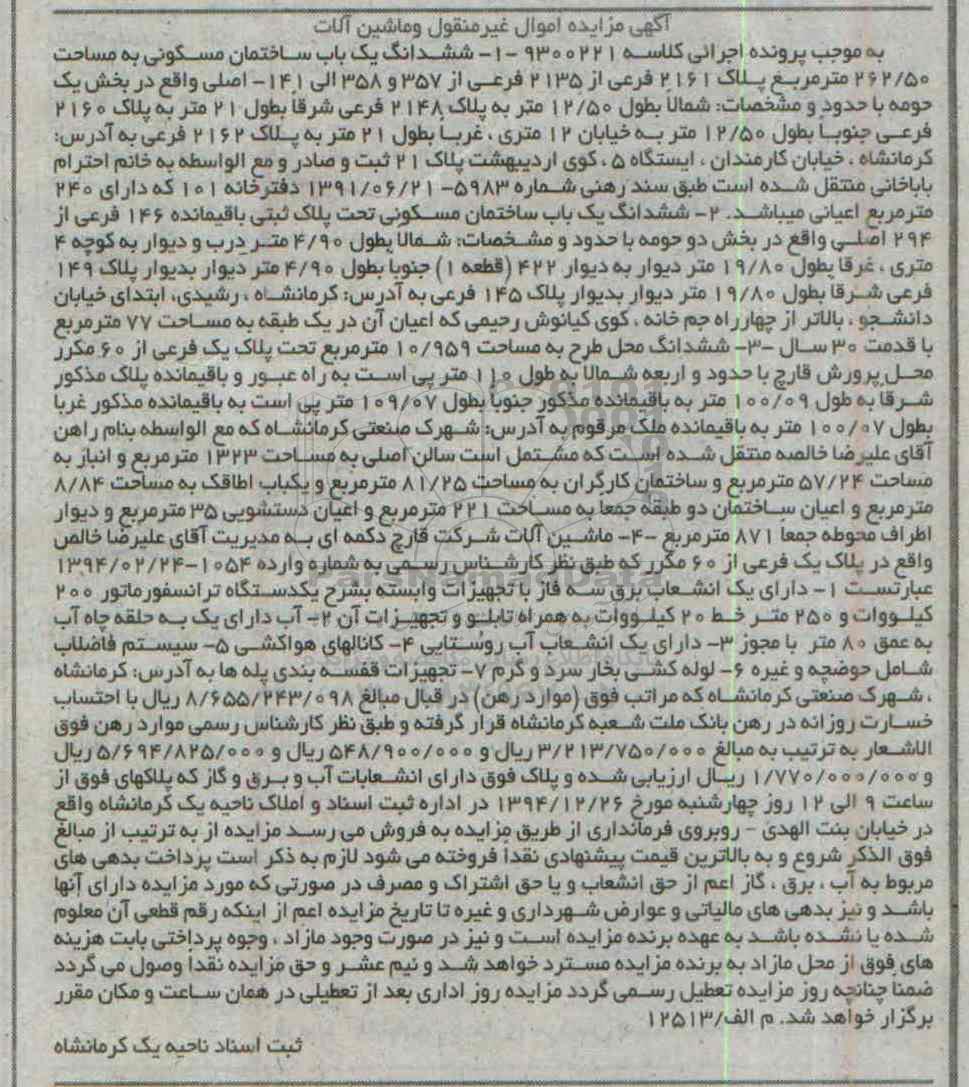 آگهی مزایده اموال غیرمنقول وماشین آلات
به موجب پرونده اجرائی کلاسه ۹۳۰۰۲۲۱ -۱- ششدانگ یک باب ساختمان مسکونی به مساحت
۲۶۲/۵۰ مترمربع پلاک ۲۱۶۱ فرعی از ۲۱۳۵ فرعی از ۳۵۷ و ۳۵۸ الی ۱۴۱- اصلی واقع در بخش یک
حومه با حدود و مشخصات: شمالاً بطول ۱۲/۵۰ متر به پلاک ۲۱۴۸ فرعی شرقاً بطول ۲۱ متر به پلاک ۲۱۶۰
فرعی جنوباً بطول ۱۲/۵۰ متر به خیابان ۱۲ متری ، غرباً بطول ۲۱ متر به پلاک ۲۱۶۲ فرعی به آدرس:
کرمانشاه ، خیابان کارمندان ، ایستگاه ۵ ، کوی اردیبهشت پلاک ۲۱ ثبت و صادر و مع الواسطه به خانم احترام
باباخانی منتقل شده است طبق سند رهنی شماره ۵۹۸۳- ۱۳۹۱/۰۶/۲۱ دفترخانه ۱۰۱ که دارای ۲۴۰
مترمربع اعیانی میباشد. ۲- ششدانگ یک باب ساختمان مسکونی تحت پلاک ثبتی باقیمانده ۱۴۶ فرعی از
۲۹۴ اصلی واقع در بخش دو حومه با حدود و مشخصات: شمالاً بطول ۴/۹۰ متر درب و دیوار به کوچه ۴
متری ، غرقا بطول ۱۹/۸۰ متر دیوار به دیوار ۴۲۲ (قطعه ۱) جنوبا بطول ۴/۹۰ متر دیوار بدیوار پلاک ۱۴۹
فرعی شرقا بطول ۱۹/۸۰ متر دیوار بدیوار پلاک ۱۴۵ فرعی به آدرس: کرمانشاه ، رشیدی، ابتدای خیابان
دانشجو ، بالاتر از چهارراه جم خانه ، کوی کیانوش رحیمی که اعیان آن در یک طبقه به مساحت ۷۷ مترمربع
با قدمت ۳۰ سال -۳- ششدانگ محل طرح به مساحت ۱۰/۹۵۹ مترمربع تحت پلاک یک فرعی از ۶۰ مکرر
محل پرورش قارچ با حدود و اربعه شمالاً به طول ۱۱۰ متر پی است به راه عبور و باقیمانده پلاک مذکور
شرقا به طول ۱۰۰/۰۹ متر به باقیمانده مذکور جنوباً بطول ۱۰۹/۰۷ متر پی است به باقیمانده مذکور غربا
بطول ۱۰۰/۰۷ متر به باقیمانده ملک مرقوم به آدرس: شهرک صنعتی کرمانشاه که مع الواسطه بنام راهن
آقای علیرضا خالصه منتقل شده است که مشتمل است سالن اصلی به مساحت ۱۳۲۳ مترمربع و انبار به
مساحت ۵۷/۲۴ مترمربع و ساختمان کارگران به مساحت ۸۱/۲۵ مترمربع و یکباب اطاقک به مساحت ۸/۸۴
مترمربع و اعیان ساختمان دو طبقه جمعا به مساحت ۲۲۱ مترمربع و اعیان دستشویی ۳۵ مترمربع و دیوار
اطراف محوطه جمعا ۸۷۱ مترمربع -۴- ماشین آلات شرکت قارچ دکمه ای به مدیریت آقای علیرضا خالص
واقع در پلاک یک فرعی از ۶۰ مکرر که طبق نظر کارشناس رسمی به شماره وارده ۱۰۵۴-۱۳۹۴/۰۲/۲۴
عبارتست ۱- دارای یک انشعاب برق سه فاز با تجهیزات وابسته بشرح یکدستگاه ترانسفورماتور ۲۰۰
کیلووات و ۲۵۰ متر خط ۲۰ کیلووات به همراه تابلو و تجهیزات آن ۲- آب دارای یک به حلقه چاه آب
به عمق ۸۰ متر با مجوز ۳- دارای یک انشعاب آب روستایی ۴- کانالهای هواکشی ۵- سیستم فاضلاب
شامل حوضچه و غیره ۶- لوله کشی بخار سرد و گرم ۷- تجهیزات قفسه بندی پله ها به آدرس: کرمانشاه
، شهرک صنعتی کرمانشاه که مراتب فوق (موارد رهن) در قبال مبالغ ۸/۶۵۵/۲۴۳/۰۹۸ ریال با احتساب
خسارت روزانه در رهن بانک ملت شعبه کرمانشاه قرار گرفته و طبق نظر کارشناس رسمی موارد رهن فوق
الاشعار به ترتیب به مبالغ ۳/۲۱۳/۷۵۰/۰۰۰ ریال و ۵۴۸/۹۰۰/۰۰۰ ریال و ۵/۶۹۴/۸۲۵/۰۰۰ ریال
و ۱/۷۷۰/۰۰۰/۰۰۰ ریال ارزیابی شده و پلاک فوق دارای انشعابات آب و برق و گاز که پلاکهای فوق از
ساعت ۹ الی ۱۲ روز چهارشنبه مورخ ۱۳۹۴/۱۲/۲۶ در اداره ثبت اسناد و املاک ناحیه یک کرمانشاه واقع
در خیابان بنت الهدی - روبروی فرمانداری از طریق مزایده به فروش می رسد مزایده از به ترتیب از مبالغ
فوق الذکر شروع و به بالاترین قیمت پیشنهادی نقداً فروخته می شود لازم به ذکر است پرداخت بدهی های
مربوط به آب ، برق ، گاز اعم از حق انشعاب و یا حق اشتراک و مصرف در صورتی که مورد مزایده دارای آنها
باشد و نیز بدهی های مالیاتی و عوارض شهرداری و غیره تا تاریخ مزایده اعم از اینکه رقم قطعی آن معلوم
شده یا نشده باشد به عهده برنده مزایده است و نیز در صورت وجود مازاد ، وجوه پرداختی بابت هزینه
های فوق از محل مازاد به برنده مزایده مسترد خواهد شد و نیم عشر و حق مزایده نقداً وصول می گردد
ضمنا چنانچه روز مزایده تعطیل رسمی گردد مزایده روز اداری بعد از تعطیلی در همان ساعت و مکان مقرر
برگزار خواهد شد. م الف/۱۲۵۱۳
ثبت اسناد ناحیه یک کرمانشاه
ParsNamadData